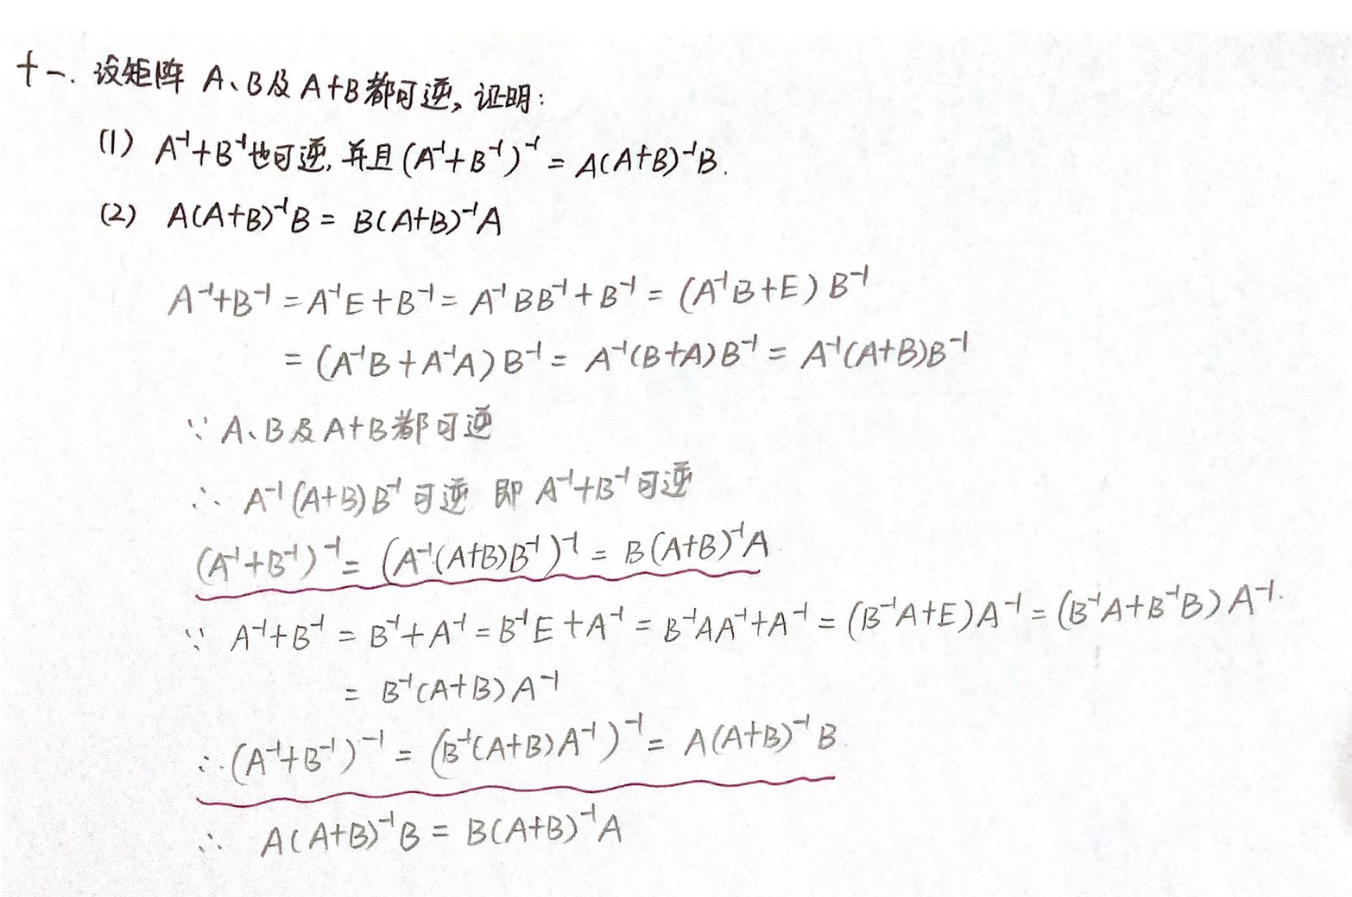 十一. 设矩阵 A、B及A+B都可逆, 证明:
(1) A⁻¹+B⁻¹也可逆, 并且(A⁻¹+B⁻¹)⁻¹ = A(A+B)⁻¹B.
(2) A(A+B)⁻¹B = B(A+B)⁻¹A
A⁻¹+B⁻¹ = A⁻¹E+B⁻¹ = A⁻¹BB⁻¹+B⁻¹ = (A⁻¹B+E)B⁻¹
= (A⁻¹B+A⁻¹A)B⁻¹ = A⁻¹(B+A)B⁻¹ = A⁻¹(A+B)B⁻¹
∵ A、B及A+B都可逆
∴ A⁻¹(A+B)B⁻¹可逆 即 A⁻¹+B⁻¹可逆
(A⁻¹+B⁻¹)⁻¹ = (A⁻¹(A+B)B⁻¹)⁻¹ = B(A+B)⁻¹A
∵ A⁻¹+B⁻¹ = B⁻¹+A⁻¹ = B⁻¹E+A⁻¹ = B⁻¹AA⁻¹+A⁻¹ = (B⁻¹A+E)A⁻¹ = (B⁻¹A+B⁻¹B)A⁻¹.
= B⁻¹(A+B)A⁻¹
∴ (A⁻¹+B⁻¹)⁻¹ = (B⁻¹(A+B)A⁻¹)⁻¹ = A(A+B)⁻¹B
∴ A(A+B)⁻¹B = B(A+B)⁻¹A